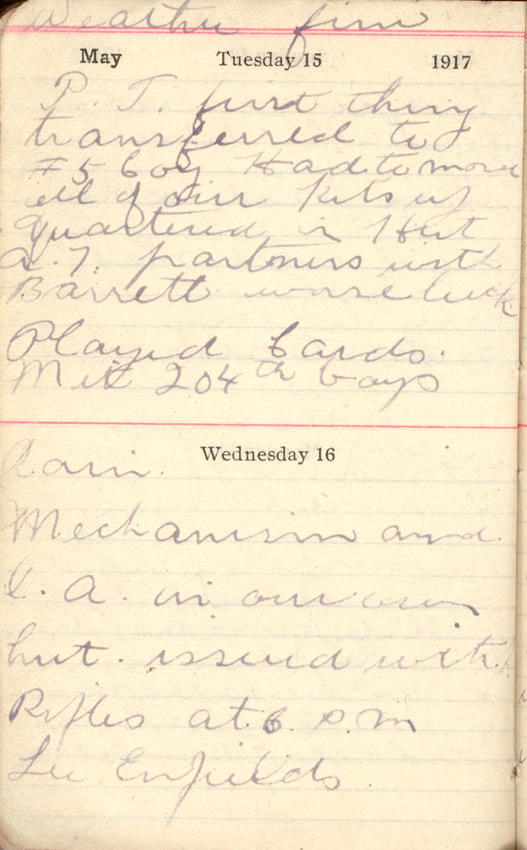 Weather fine
May Tuesday 15 1917
P. T. first thing
transferred to
#5 Coy Had to move
all of our kits up
quartered in Hut
A.7. partners with
Barrett worse luck
Played Cards.
Met 204th boys
Wednesday 16
Rain.
Mechanism and
I. A. in our own
hut. issued with
Rifles at 6 P.M
Lee Enfields